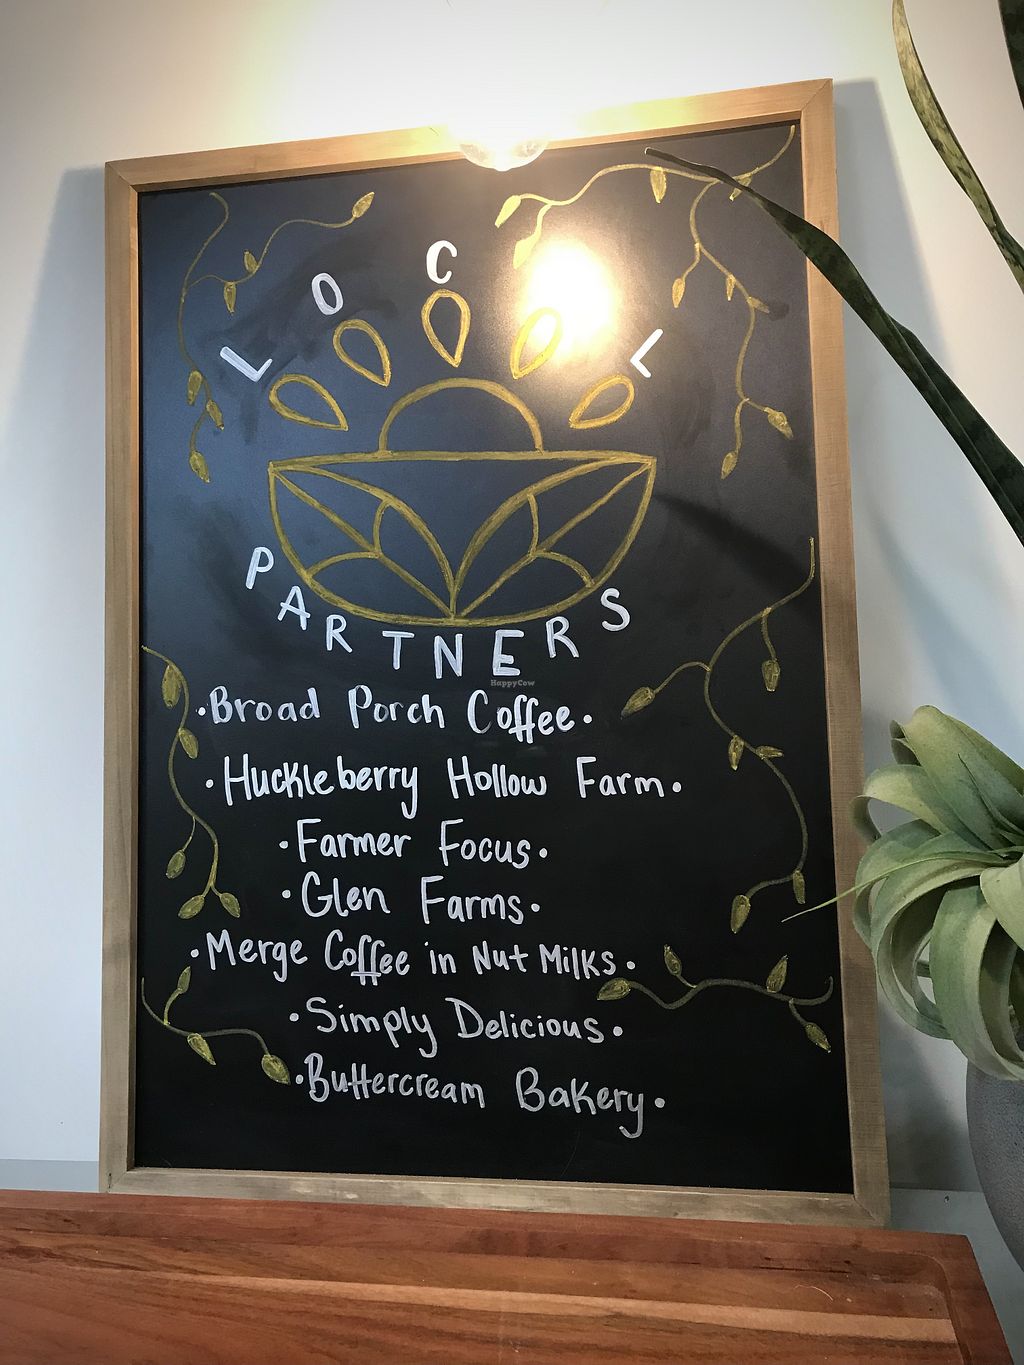 LOCAL
PARTNERS
HappyCow
·Broad Porch Coffee·
·Huckleberry Hollow Farm·
·Farmer Focus·
·Glen Farms·
·Merge Coffee in Nut Milks·
·Simply Delicious·
·Buttercream Bakery·